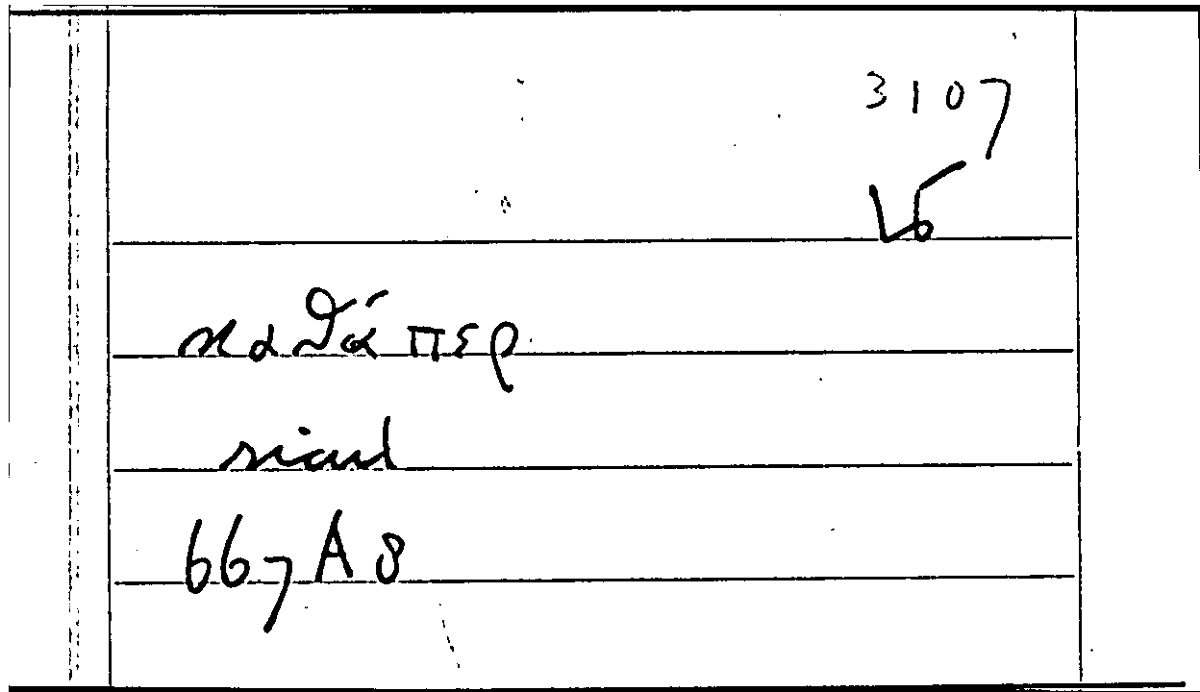 3107
15
καθάπερ
sicut
667 A 8